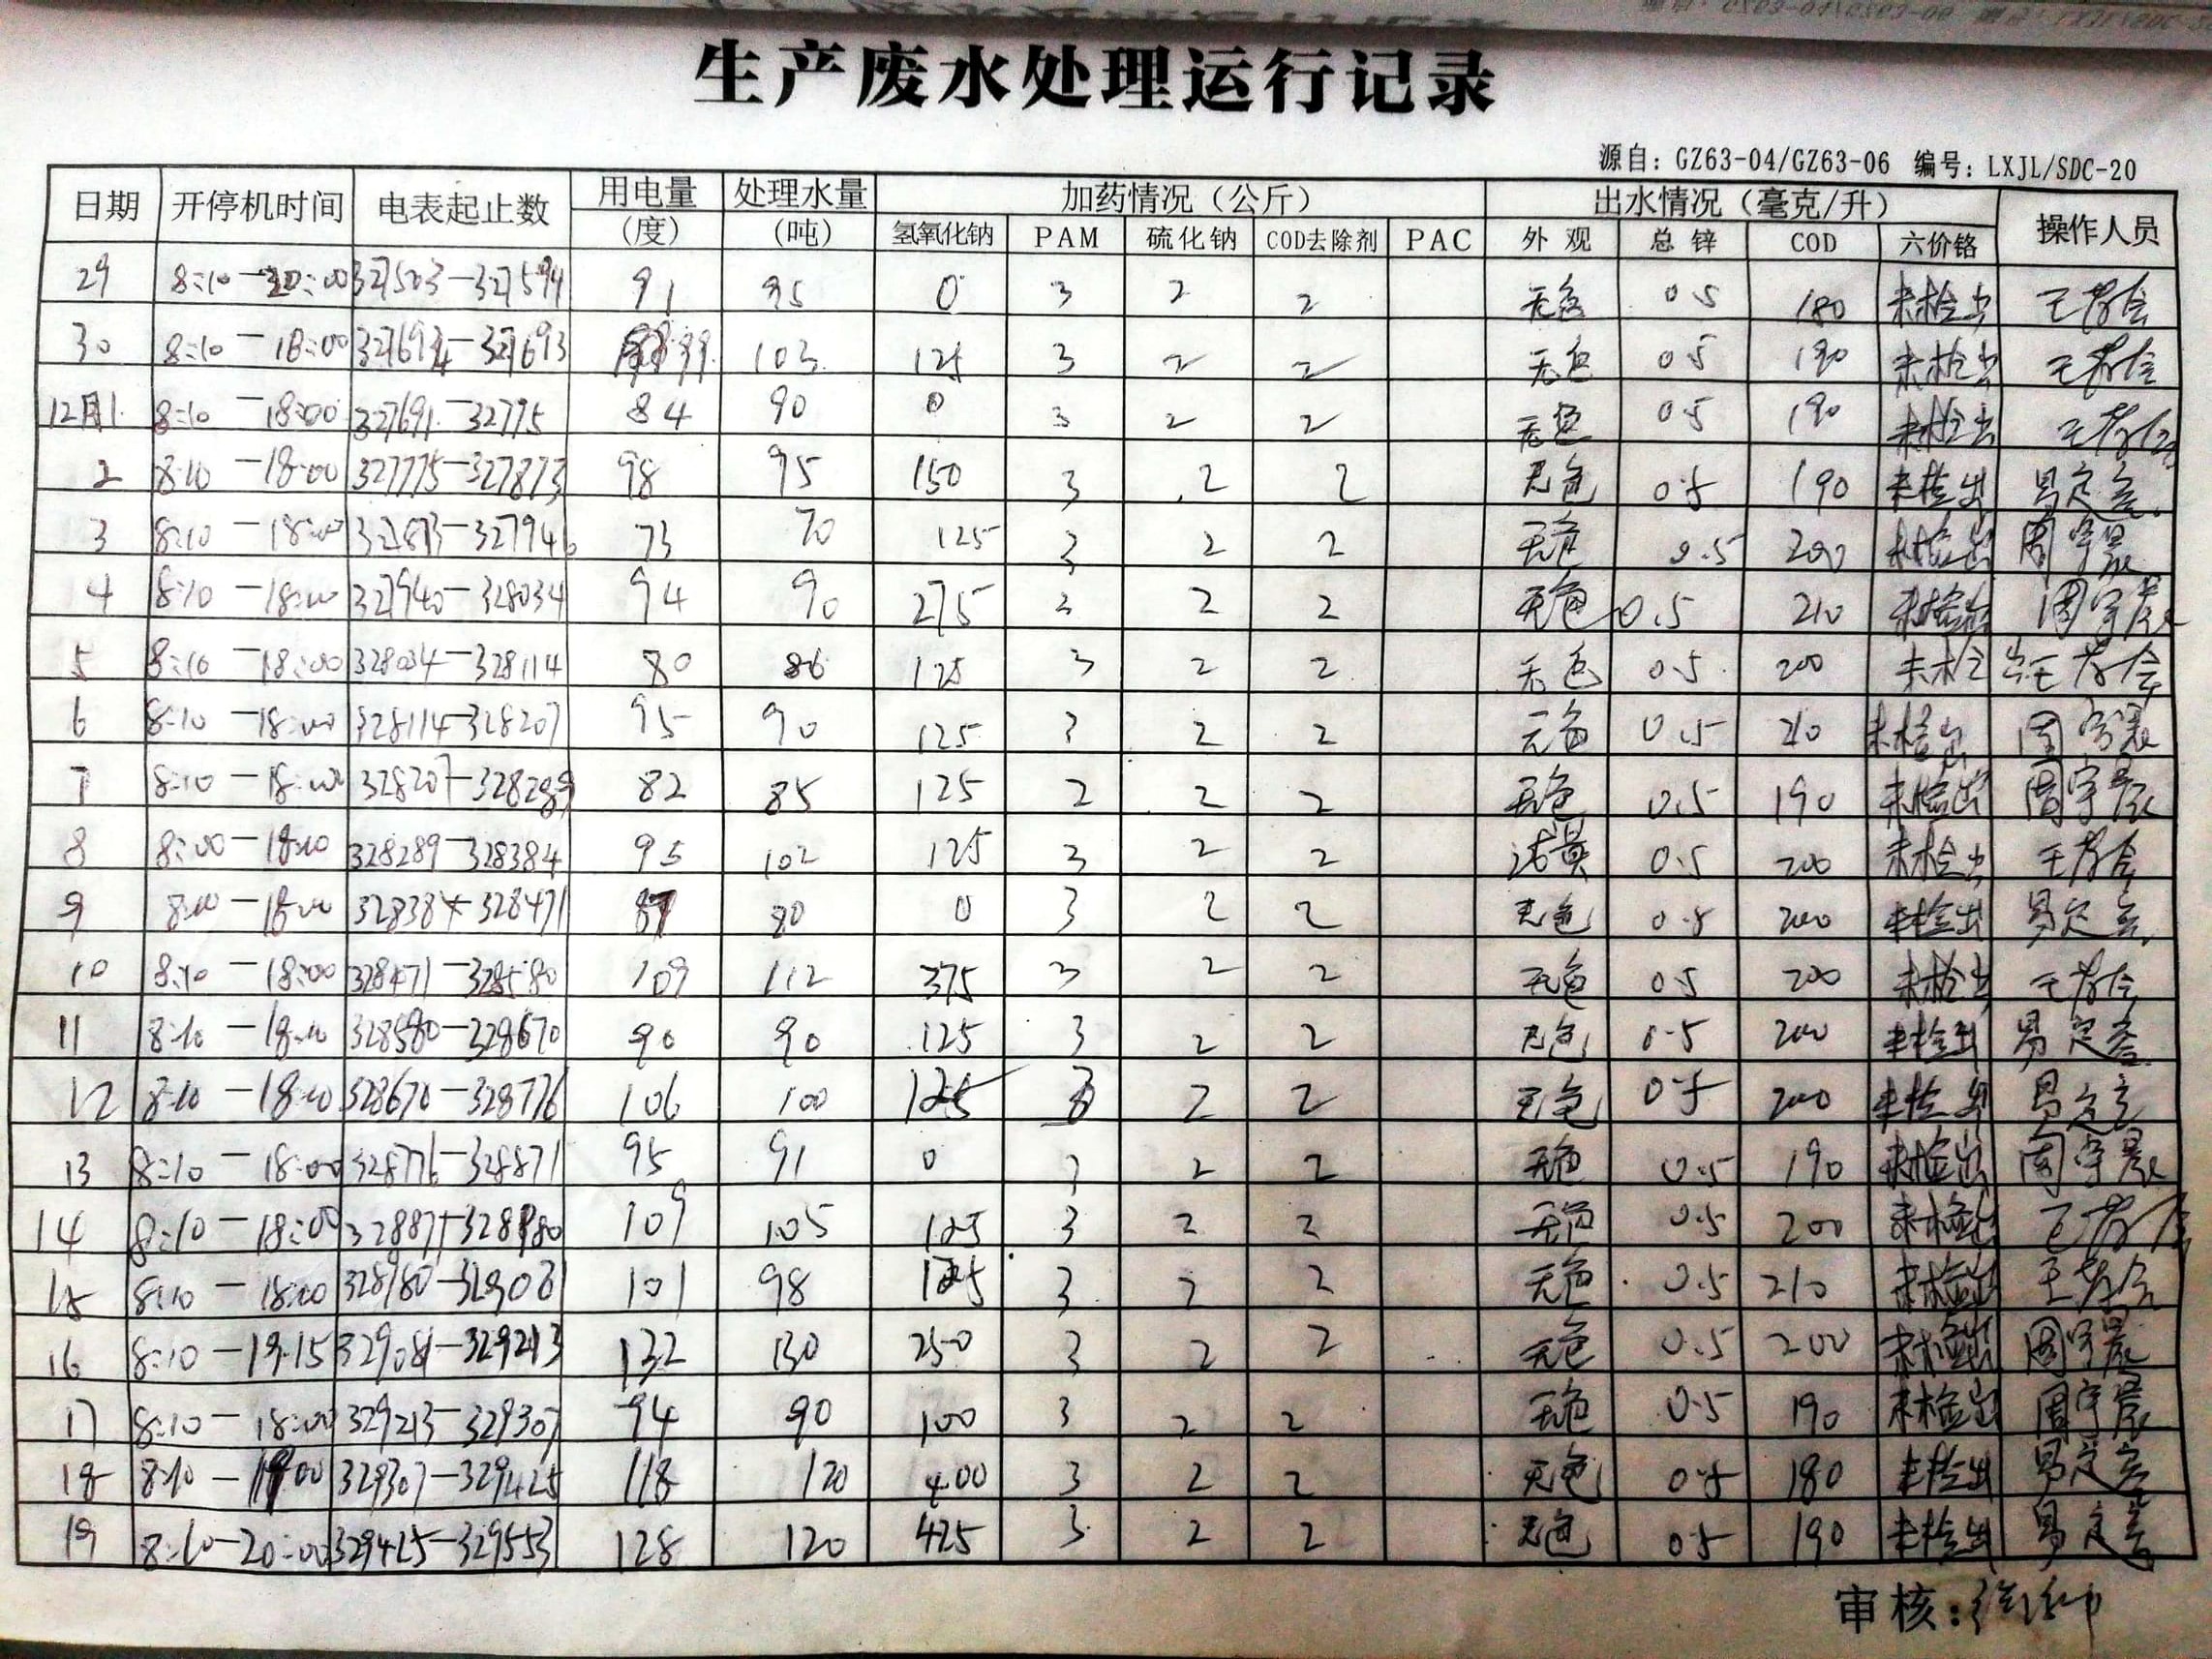 生产废水处理运行记录
源自：GZ63-04/GZ63-06 编号：LXJL/SDC-20
日期 开停机时间 电表起止数 用电量（度） 处理水量（吨） 加药情况（公斤） 出水情况（毫克/升） 操作人员
氢氧化钠 PAM 硫化钠 COD去除剂 PAC 外观 总锌 COD 六价铬
29 8:10-20:00 327503-327594 91 95 0 3 2 2 无色 0.5 180 未检出
30 8:10-18:00 327694-327693 99 103 125 3 2 2 无色 0.5 190 未检出
12月1 8:10-18:00 327691-32775 84 90 0 3 2 2 无色 0.5 190 未检出
2 8:10-18:00 327775-327873 98 95 150 3 2 2 无色 0.5 190 未检出
3 8:10-18:00 32873-327946 73 70 125 3 2 2 无色 0.5 200 未检出 周宇晨
4 8:10-18:00 327940-328034 94 90 275 3 2 2 无色 0.5 210 未检出 周宇晨
5 8:10-18:00 328034-328114 80 86 125 3 2 2 无色 0.5 200 未检出
6 8:10-18:00 328114-328207 95 90 125 3 2 2 无色 0.5 210 未检出 周宇晨
7 8:10-18:00 328207-328289 82 85 125 2 2 2 无色 0.5 190 未检出 周宇晨
8 8:00-18:00 328289-328384 95 102 125 3 2 2 0.5 200 未检出
9 8:00-18:00 328384-328471 87 80 0 3 2 2 无色 0.5 200 未检出
10 8:10-18:00 328471-328580 109 112 375 3 2 2 无色 0.5 200 未检出
11 8:10-18:00 328580-328670 90 90 125 3 2 2 无色 0.5 200 未检出
12 8:10-18:00 328670-328776 106 100 125 3 2 2 无色 0.5 200 未检出
13 8:10-18:00 328776-328871 95 91 0 3 2 2 无色 0.5 190 未检出 周宇晨
14 8:10-18:00 328871-328980 109 105 125 3 2 2 无色 0.5 200 未检出
15 8:10-18:00 328980-329081 101 98 125 3 2 2 无色 0.5 210 未检出
16 8:10-19:15 329081-329213 132 130 250 3 2 2 无色 0.5 200 未检出 周宇晨
17 8:10-18:00 329213-329307 94 90 100 3 2 2 无色 0.5 190 未检出 周宇晨
18 8:10-19:00 329307-329425 118 120 400 3 2 2 无色 0.5 180 未检出
19 8:10-20:00 329425-329553 128 120 425 3 2 2 无色 0.5 190 未检出
审核：